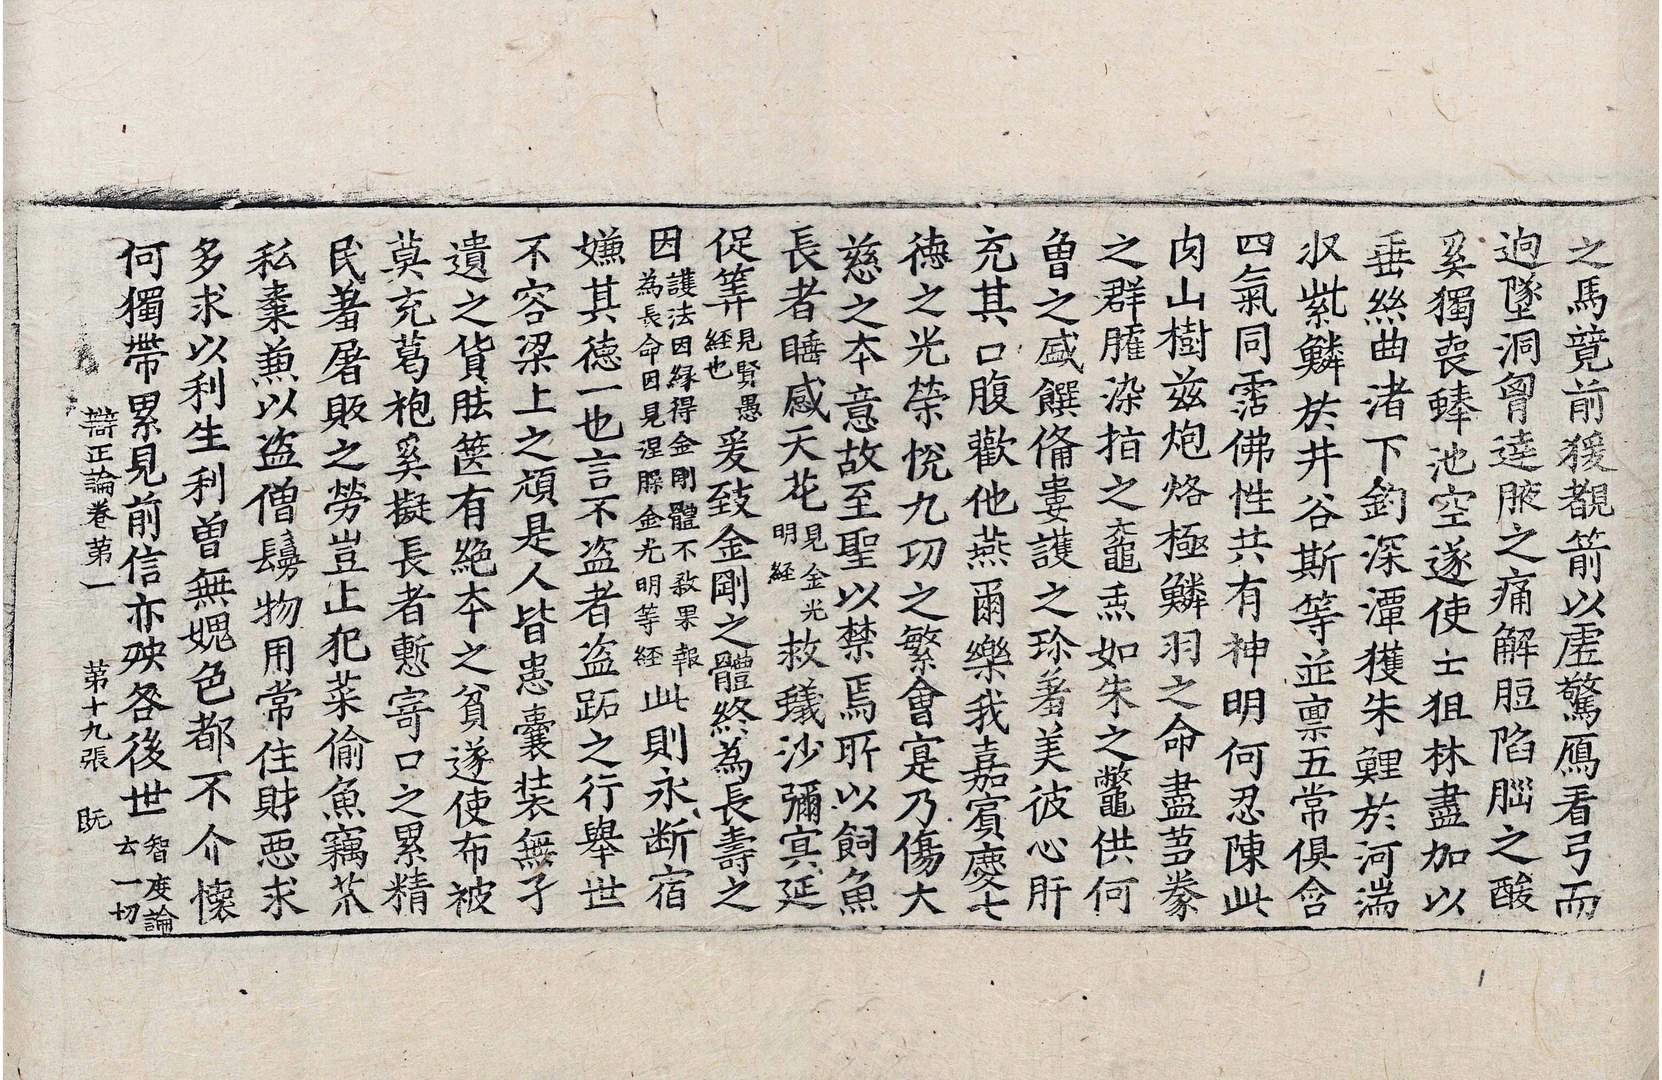 之馬競前猨覩箭以虛驚鴈看弓而
迥墜洞胷達腋之痛解脰陷腦之酸
奚獨喪䱶池空遂使士狙林盡加以
垂絲曲渚下釣深潭獲朱鯉於河湍
収紫鱗於井谷斯等並禀五常俱含
四氣同霑佛性共有神明何忍陳此
肉山樹兹炮烙極鱗羽之命盡芻豢
之群臛染指之黿𤋱如朱之鼈供何
曽之盛饌俻婁護之珍羞美彼心肝
充其口腹歡他燕爾樂我嘉賓慶七
德之光榮恱九功之繁會寔乃傷大
慈之本意故至聖以禁焉所以飼魚
長者睡感天花見金光明經救蟻沙彌㝠延
促筭見賢愚經也爰致金剛之體終為長壽之
因護法因縁得金剛體不敎果報為長命因見涅槃金光明等經此則永断宿
嫌其德一也言不盗者盗跖之行舉世
不容梁上之頑是人皆恚囊装無孑
遺之貨胠篋有絶本之貧遂使布被
莫充葛袍奚擬長者慙寄口之累精
民羞屠販之勞豈止犯菜偷魚竊𣏌
私棗兼以盗僧鬘物用常住財惡求
多求以利生利曽無媿色都不介懐
何獨帶累見前信亦殃咎後世智度論云一切
辯正論卷第一　第十九張　既